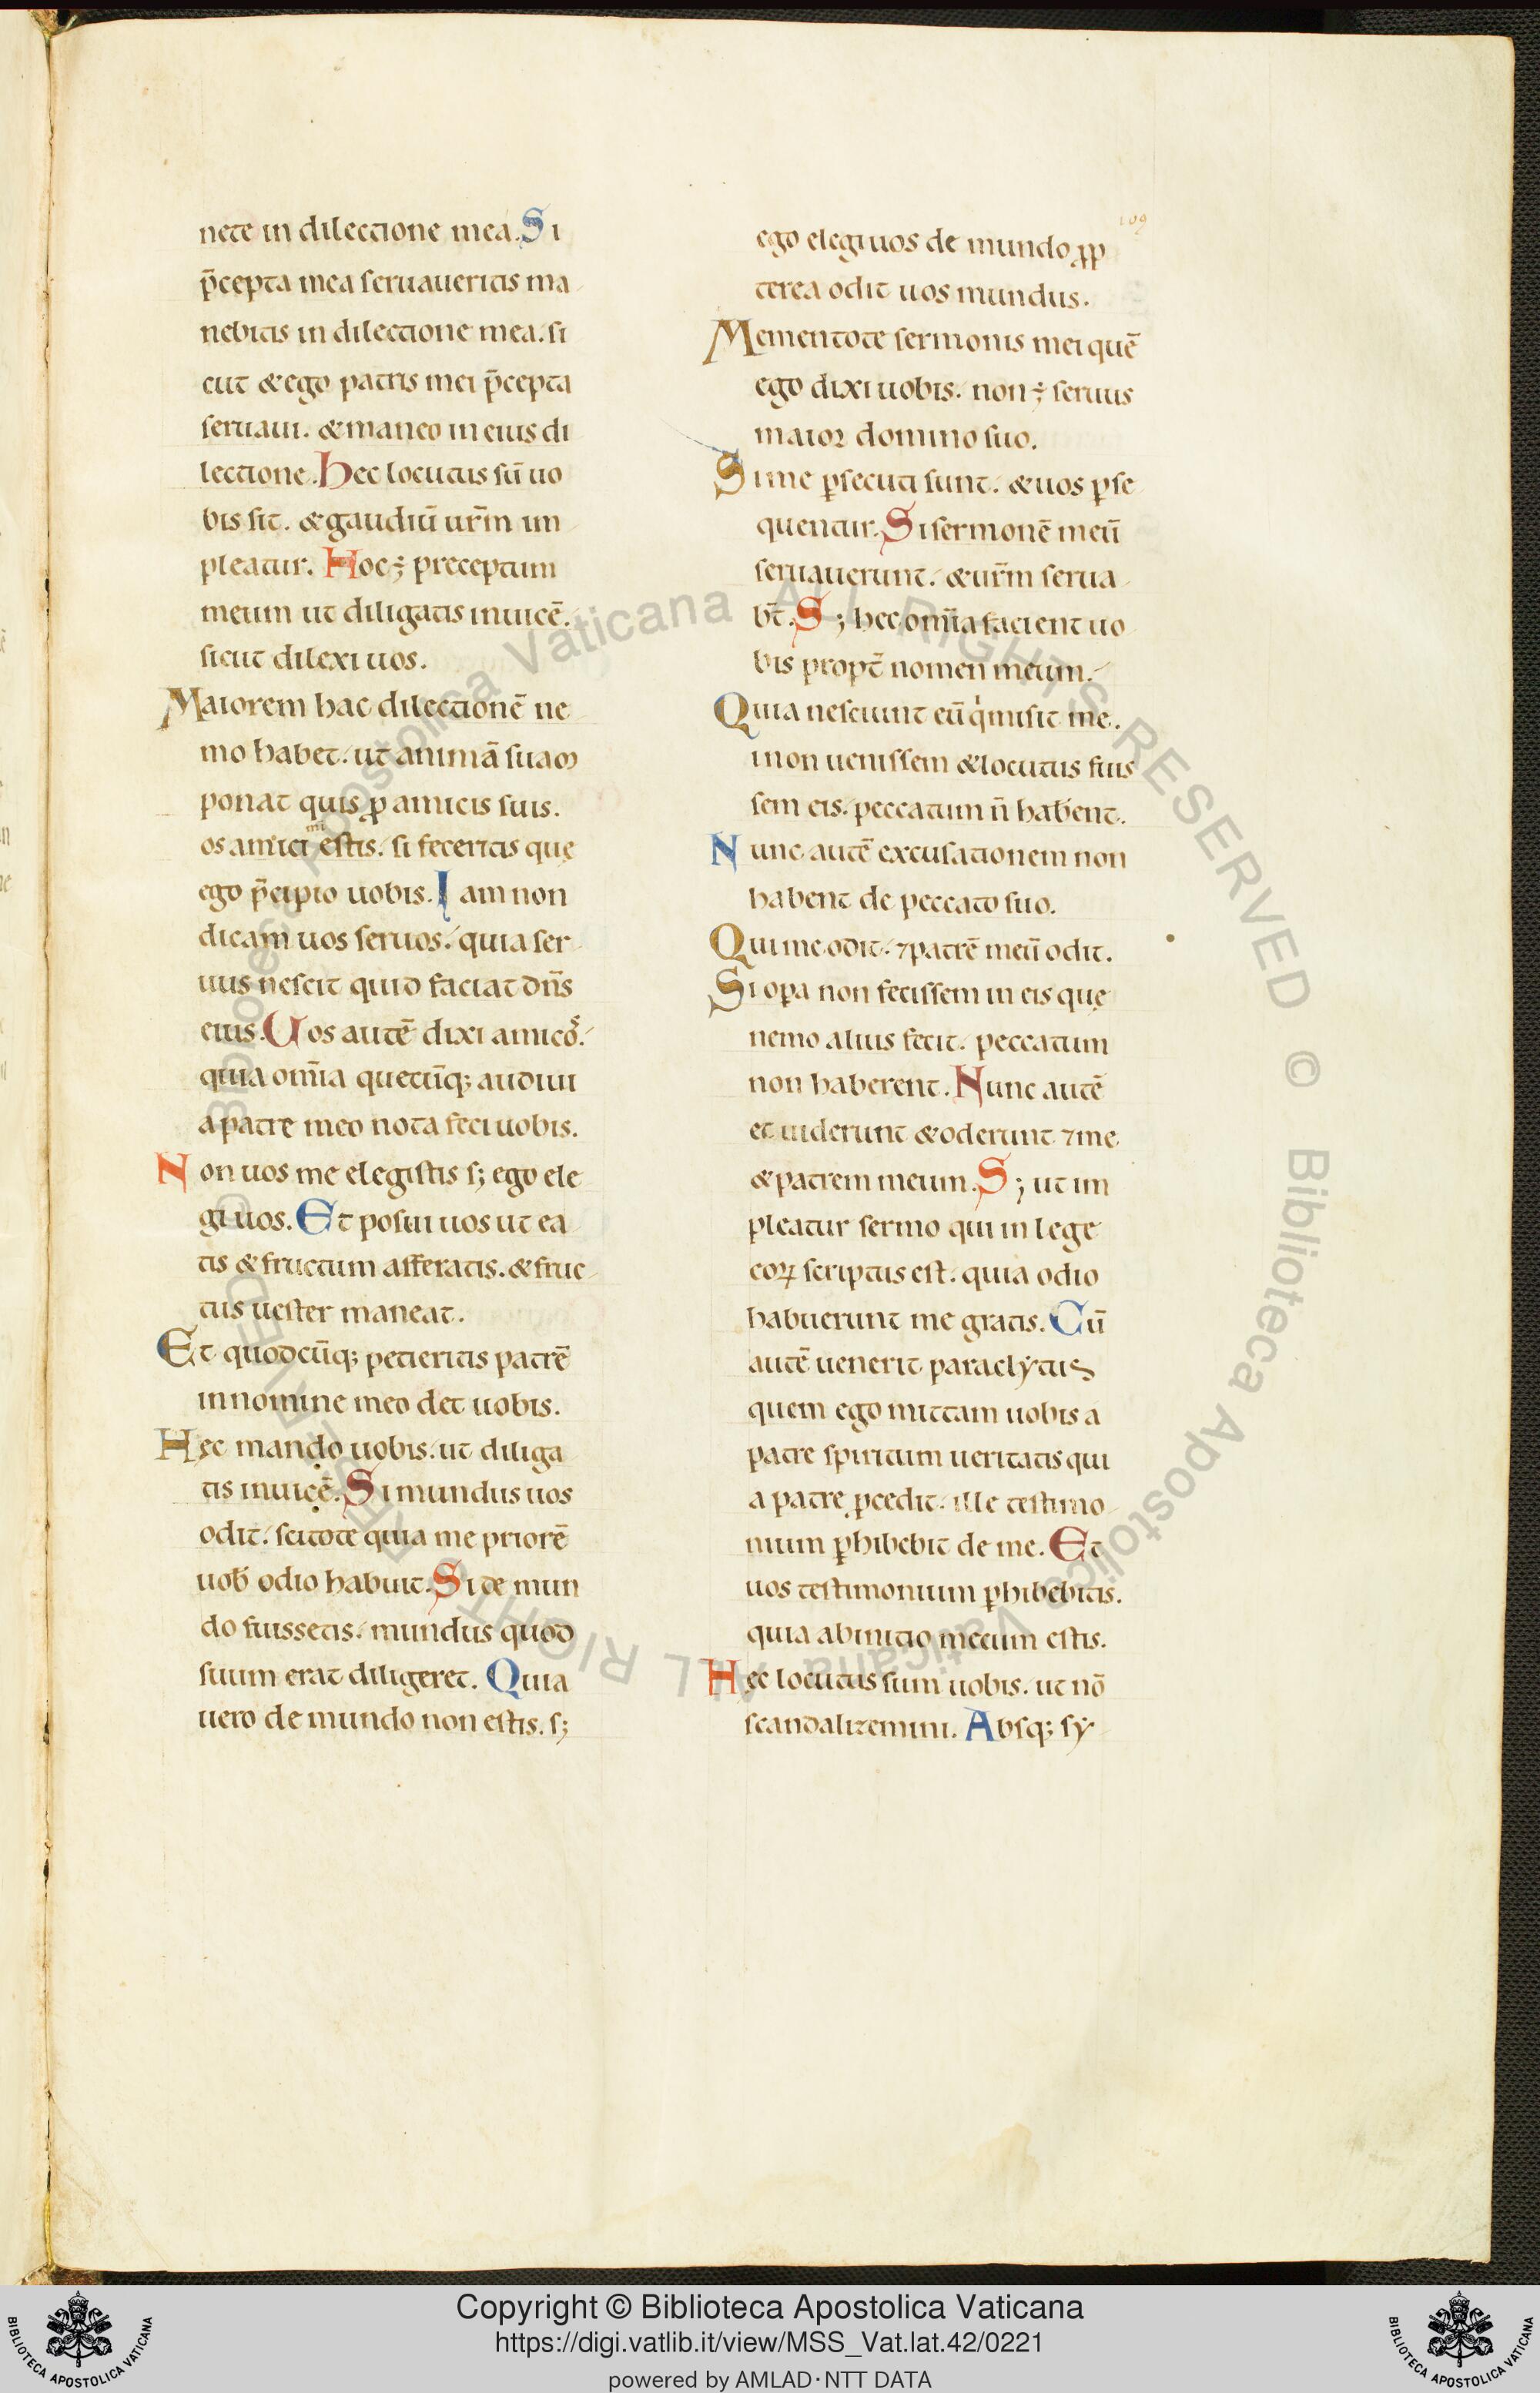 nete in dilectione mea. Si
p̄cepta mea seruaueritis ma
nebitis in dilectione mea. si
cut & ego patris mei p̄cepta
seruaui. & maneo in eius di
lectione. Hec locutus sū uo
bis sit. & gaudiū ur̄m im
pleatur. Hoc ÷ preceptum
meum ut diligatis inuicē.
sicut dilexi uos.
Maiorem hac dilectionē ne
mo habet. ut animā suam
ponat quis ꝓ amicis suis.
os amici mi estis. si feceritis quę
ego p̄cipio uobis. Iam non
dicam uos seruos. quia ser
uus nescit quid faciat dn̄s
eius. Uos autē dixi amicos.
quia om̄ia quecūq; audiui
a patre meo nota feci uobis.
Non uos me elegistis s; ego ele
gi uos. Et posui uos ut ea
tis & fructum afferatis. & fruc
tus uester maneat.
Et quodcūq; petieritis patrē
in nomine meo det uobis.
Hęc mando uobis. ut diliga
tis inuicē. Si mundus uos
odit. scitote quia me priorē
uob̄ odio habuit. Si de mun
do fuissetis. mundus quod
suum erat diligeret. Quia
uero de mundo non estis. s;
109
ego elegi uos de mundo ꝓp
terea odit uos mundus.
Mementote sermonis mei quē
ego dixi uobis. non ÷ seruus
maior domino suo.
Si me ꝑsecuti sunt. & uos ꝑse
quentur. Si sermonē meū
seruauerunt. & ur̄m serua
bt̄. S; hec om̄ia facient uo
bis propt̄ nomen meum.
Quia nesciunt eū qi misit me.
i non uenissem & locutus fuis
sem eis. peccatum n̄ haberent.
Nunc autē excusationem non
habent de peccato suo.
Qui me odit. ⁊ patrē meū odit.
Si opa non fecissem in eis quę
nemo alius fecit. peccatum
non haberent. Nunc autē
et uiderunt & oderunt ⁊ me
& patrem meum. S; ut im
pleatur sermo qui in lege
eoꝝ scriptus est. quia odio
habuerunt me gratis. Cū
autē uenerit paraclytus
quem ego mittam uobis a
patre spiritum ueritatis qui
a patre ꝓcedit. ille testimo
nium ꝑhibebit de me. Et
uos testimonium ꝑhibebitis.
quia ab initio mecum estis.
Hęc locutus sum uobis. ut nō
scandalizemini. Absq; sy
Copyright © Biblioteca Apostolica Vaticana
https://digi.vatlib.it/view/MSS_Vat.lat.42/0221
powered by AMLAD·NTT DATA
BIBLIOTECA APOSTOLICA VATICANA
BIBLIOTECA APOSTOLICA VATICANA
© Biblioteca Apostolica Vaticana ALL RIGHTS RESERVED
© Biblioteca Apostolica Vaticana ALL RIGHTS RESERVED